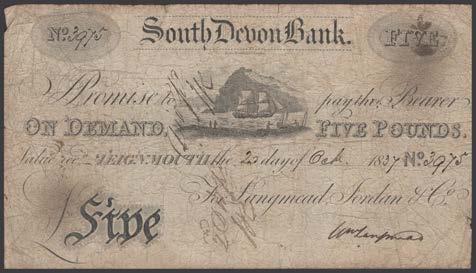 No. 3975 South Devon Bank. FIVE
Promise to pay the Bearer
ON DEMAND, FIVE POUNDS,
Value recd. TEIGNMOUTH the 2 day of Oct. 1837 No. 3975
For Langmead, Jordan & Co.
£ Five Wm Langmead